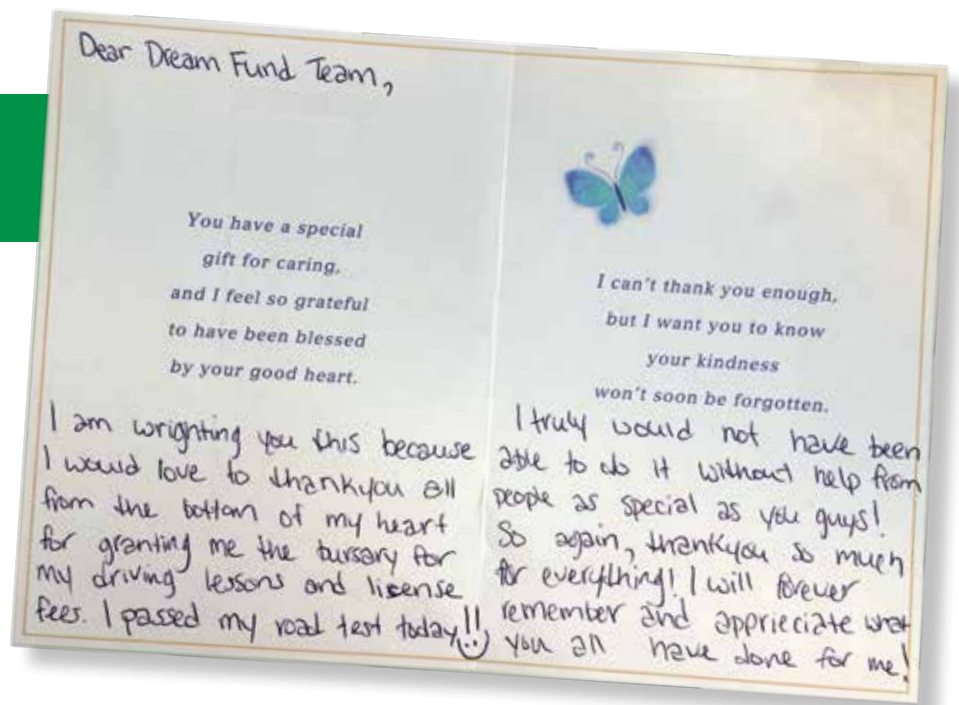 Dear Dream Fund Team,
You have a special
gift for caring,
and I feel so grateful
to have been blessed
by your good heart.
I am wrighting you this because
I would love to thankyou all
from the bottom of my heart
for granting me the bursary for
my driving lessons and lisense
fees. I passed my road test today!!
I can't thank you enough,
but I want you to know
your kindness
won't soon be forgotten.
I truly would not have been
able to do it without help from
people as special as you guys!
So again, thankyou so much
for everything! I will forever
remember and apprieciate what
you all have done for me!